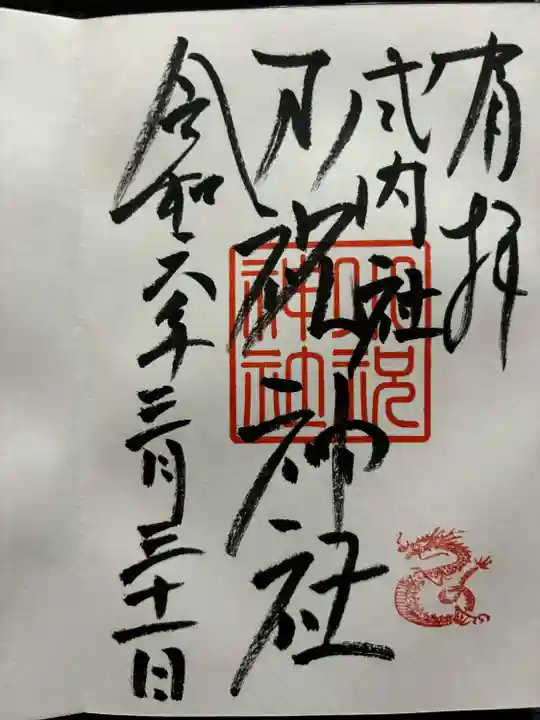 拝
式内社
祝神社
令和六年三月三十一日
祝
神社